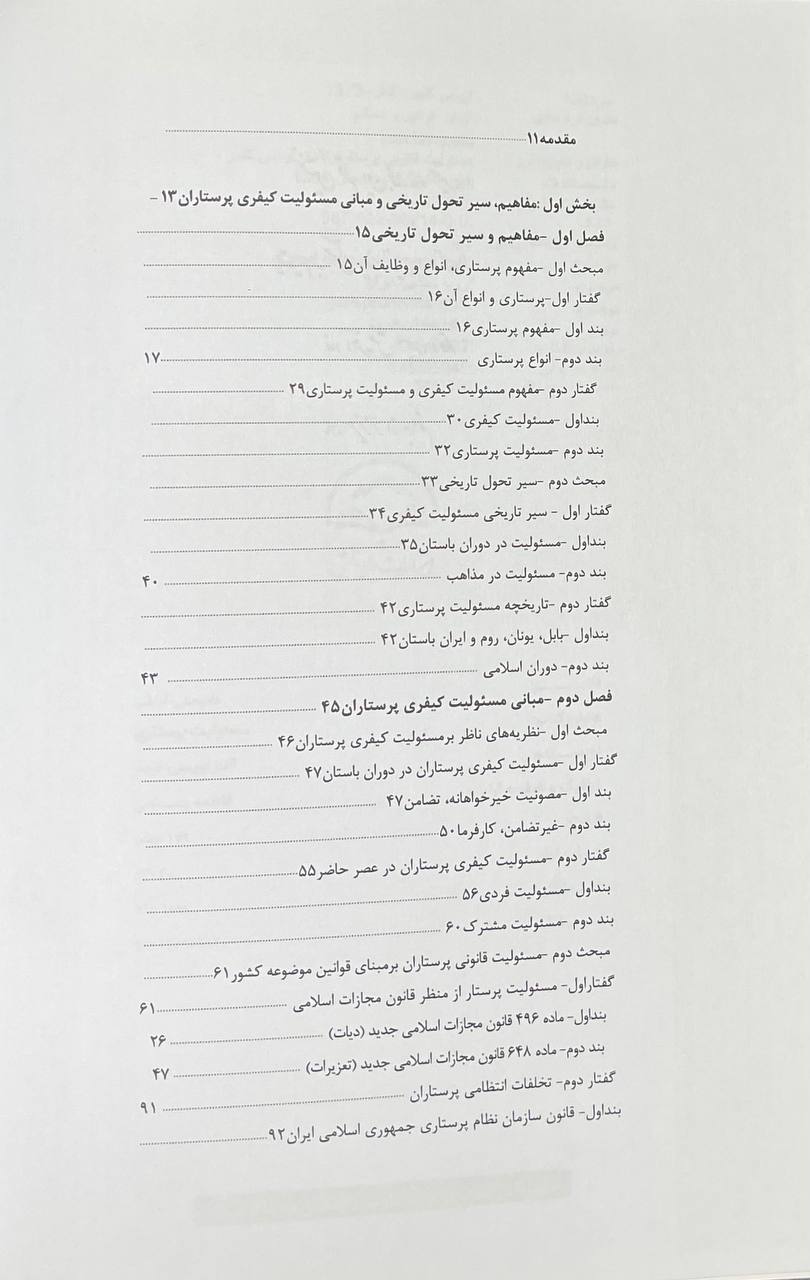 مقدمه۱۱
بخش اول :مفاهیم، سیر تحول تاریخی و مبانی مسئولیت کیفری پرستاران۱۳
فصل اول -مفاهیم و سیر تحول تاریخی۱۵
مبحث اول -مفهوم پرستاری، انواع و وظایف آن۱۵
گفتار اول-پرستاری و انواع آن۱۶
بند اول -مفهوم پرستاری۱۶
بند دوم- انواع پرستاری ۱۷
گفتار دوم -مفهوم مسئولیت کیفری و مسئولیت پرستاری۲۹
بنداول -مسئولیت کیفری۳۰
بند دوم -مسئولیت پرستاری۳۲
مبحث دوم -سیر تحول تاریخی۳۳
گفتار اول - سیر تاریخی مسئولیت کیفری۳۴
بنداول -مسئولیت در دوران باستان۳۵
بند دوم- مسئولیت در مذاهب ۴۰
گفتار دوم -تاریخچه مسئولیت پرستاری۴۲
بنداول -بابل، یونان، روم و ایران باستان۴۲
بند دوم- دوران اسلامی ۴۳
فصل دوم -مبانی مسئولیت کیفری پرستاران۴۵
مبحث اول -نظریه‌های ناظر برمسئولیت کیفری پرستاران۴۶
گفتار اول -مسئولیت کیفری پرستاران در دوران باستان۴۷
بند اول -مصونیت خیرخواهانه، تضامن۴۷
بند دوم -غیرتضامن، کارفرما۵۰
گفتار دوم -مسئولیت کیفری پرستاران در عصر حاضر۵۵
بنداول -مسئولیت فردی۵۶
بند دوم -مسئولیت مشترک۶۰
مبحث دوم -مسئولیت قانونی پرستاران برمبنای قوانین موضوعه کشور۶۱
گفتاراول- مسئولیت پرستار از منظر قانون مجازات اسلامی ۶۱
بنداول- ماده ۴۹۶ قانون مجازات اسلامی جدید (دیات) ۲۶
بند دوم- ماده ۶۴۸ قانون مجازات اسلامی جدید (تعزیرات) ۴۷
گفتار دوم- تخلفات انتظامی پرستاران ۹۱
بنداول- قانون سازمان نظام پرستاری جمهوری اسلامی ایران۹۲